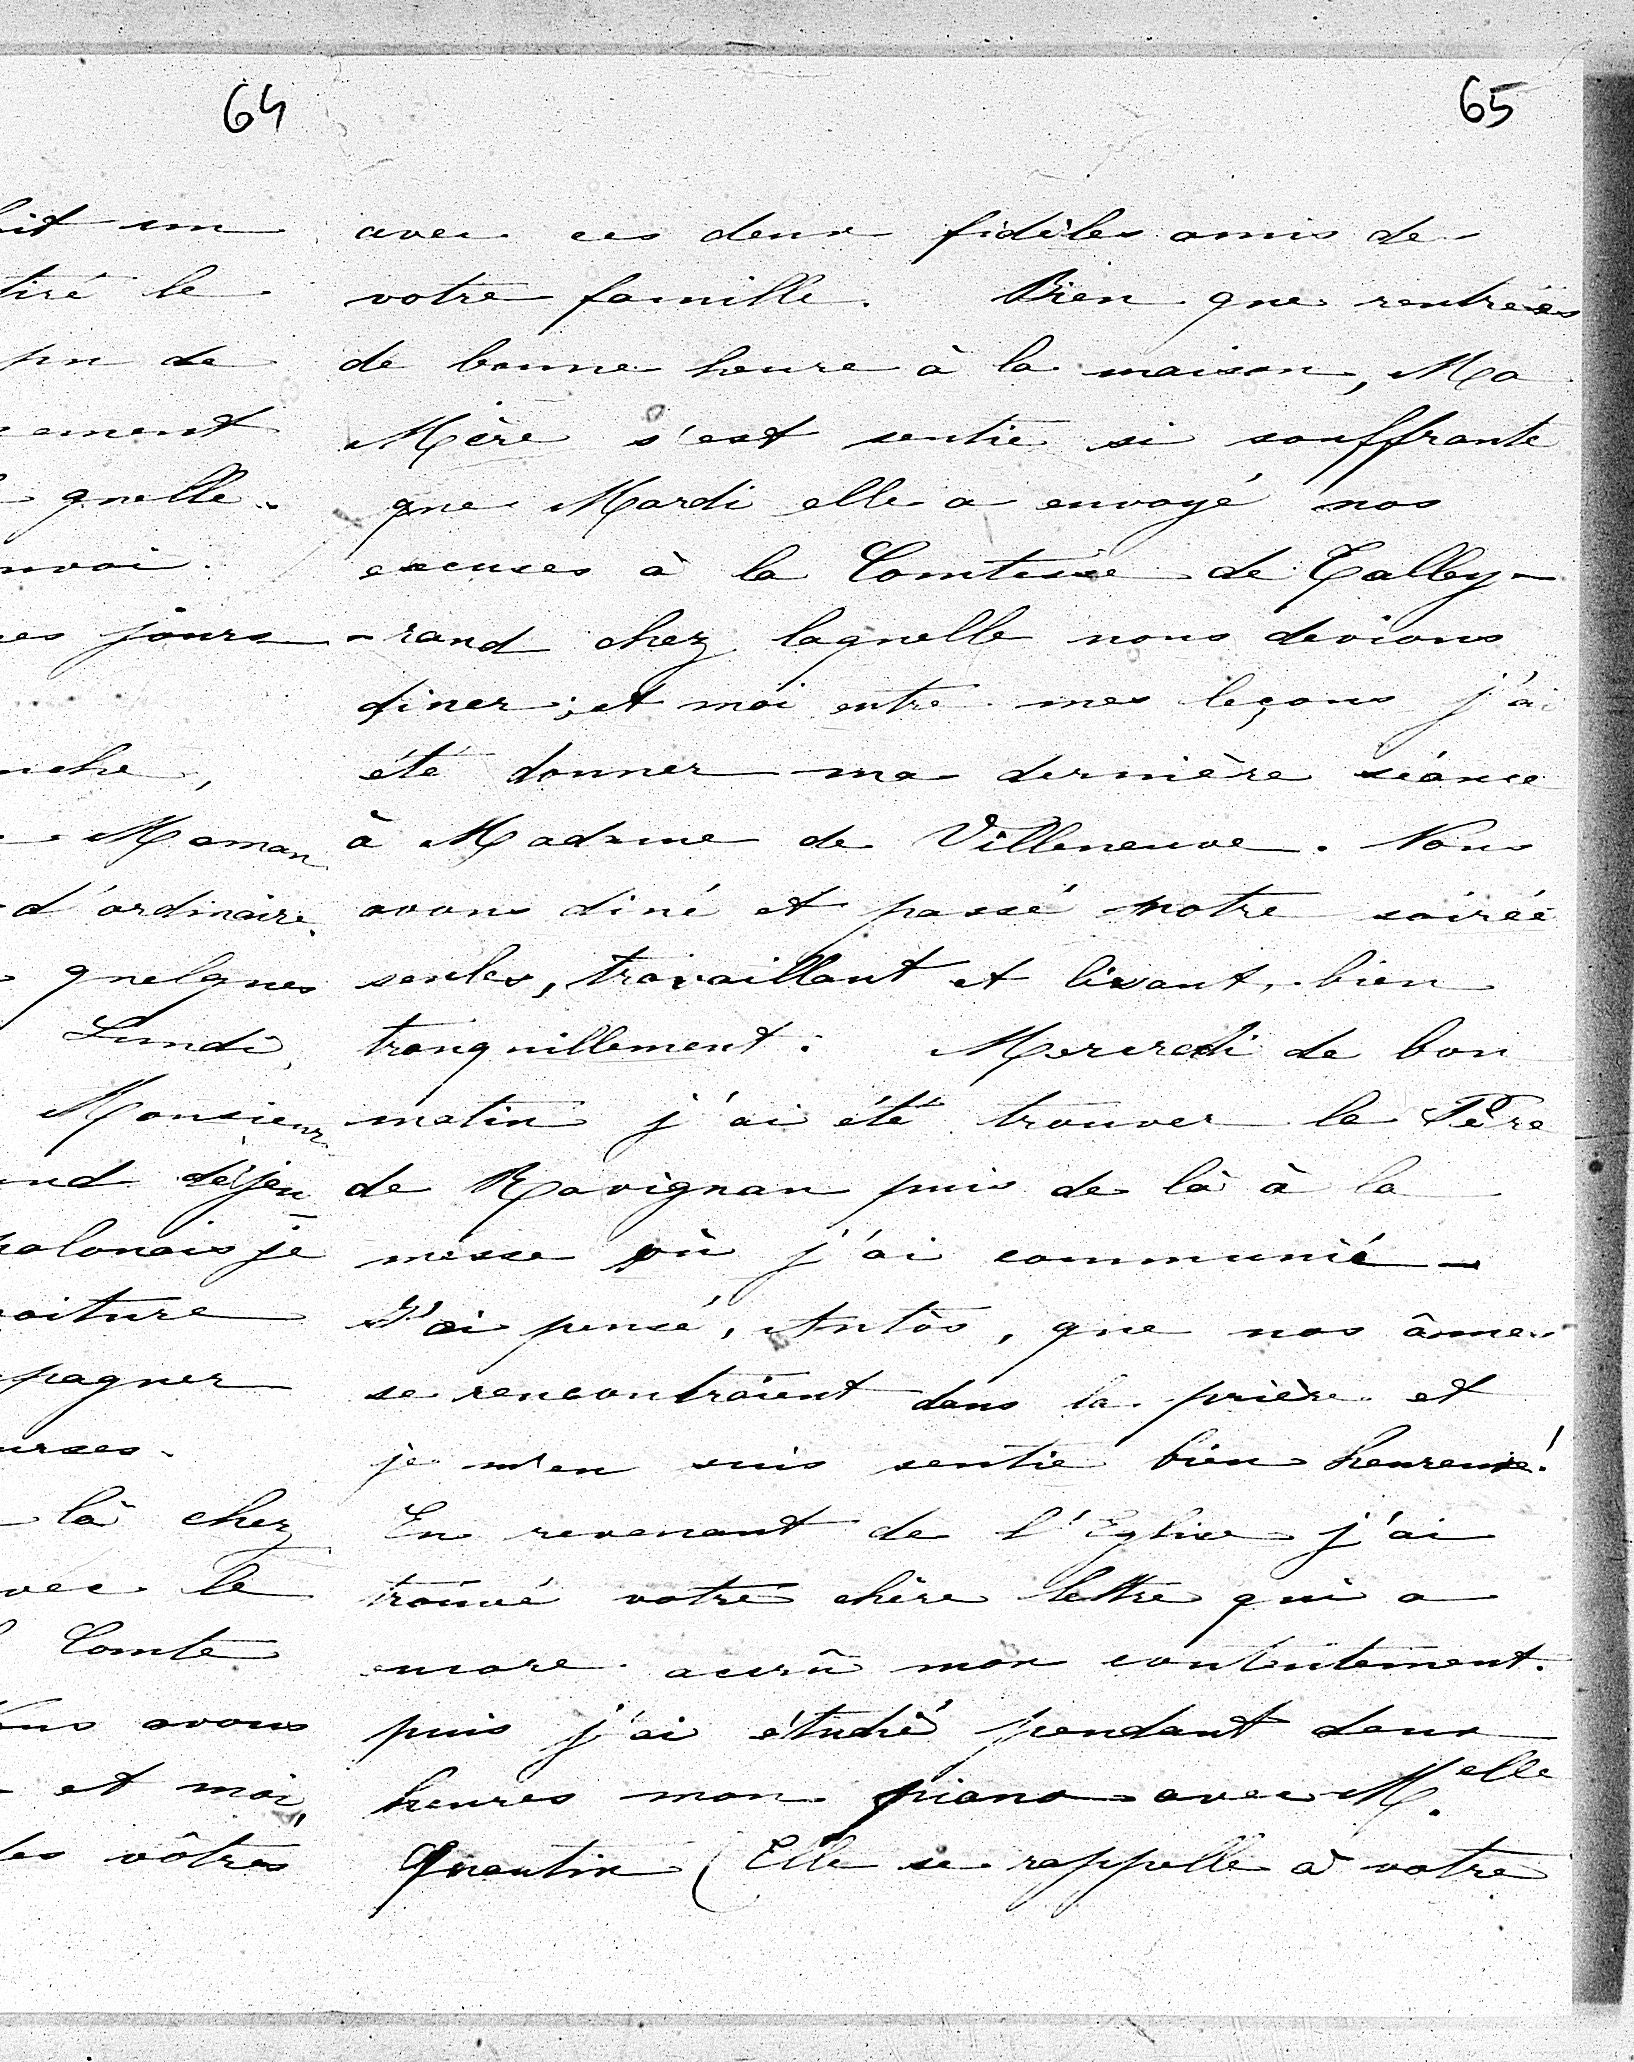 64
it un
tiré le
de
ement
quelle
nvoi.
es jours
nche,
Maman
d'ordinaire.
quelques
Lundi,
Monsieur
nd déjeu-
polonais je
voiture
pagner
urses.
là chez
vec le
Comte
ous avons
et moi,
les vôtres
65
avec ces deux fidèles amis de
votre famille. Bien que rentrées
de bonne heure à la maison, Ma
Mère s'est sentie si souffrante
que Mardi elle a envoyé nos
excuses à la Comtesse de Talley-
-rand chez laquelle nous devions
diner; et moi entre mes leçons j'ai
été donner ma dernière séance
à Madame de Villeneuve. Nous
avons diné et passé notre soirée
seules, travaillant et lisant, bien
tranquillement. Mercredi de bon
matin j'ai été trouver le Père
de Ravignan puis de là à la
messe où j'ai communié –
J'ai pensé, Antos, que nos âmes
se rencontraient dans la prière et
je m'en suis sentie bien heureuse!
En revenant de l'Eglise j'ai
trouvé votre chère lettre qui a
encore accrû mon contentement.
puis j'ai étudié pendant deux
heures mon piano avec M.elle
Quentin (Elle se rappelle à votre